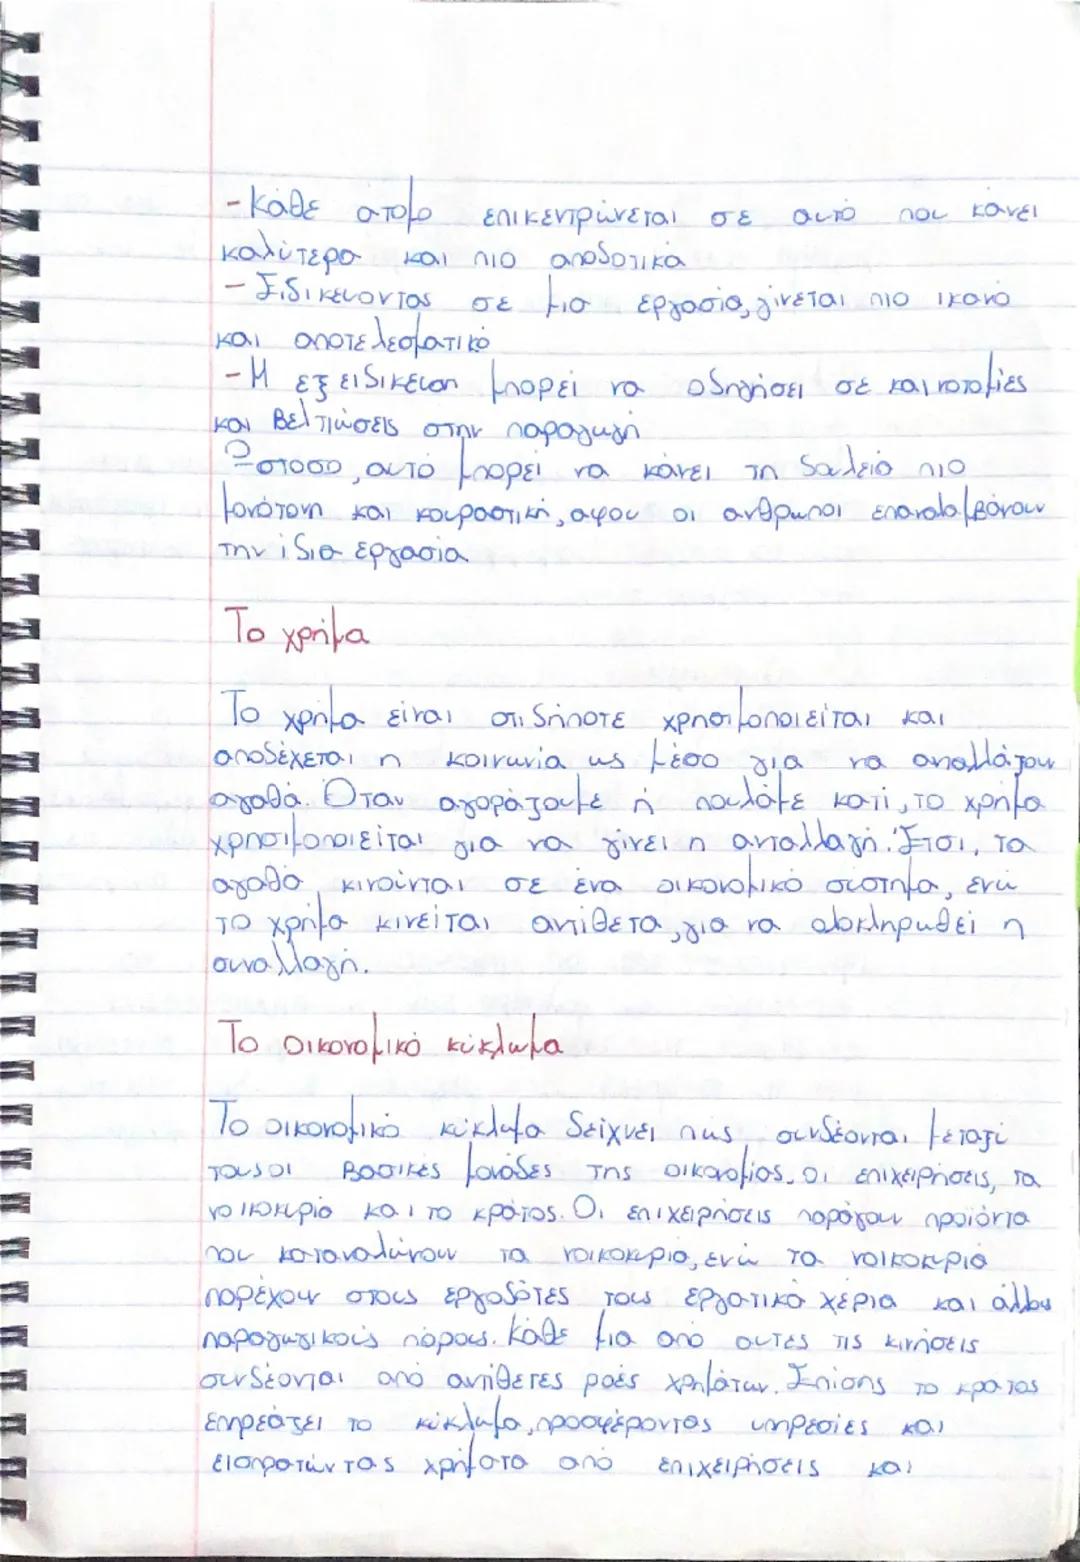 - Κάθε άτομο επικεντρώνεται σε αυτό που κάνει
καλύτερα και πιο αποδοτικά
- Ειδικεύοντας σε μια εργασία, γίνεται πιο ικανό
και αποτελεσματικό
- Η εξειδίκευση μπορεί να οδηγήσει σε καινοτομίες
και βελτιώσεις στην παραγωγή
Ωστόσο, αυτό μπορεί να κάνει τη δουλειά πιο
μονότονη και κουραστική, αφού οι άνθρωποι επαναλαμβάνουν
την ίδια εργασία
Το χρήμα
Το χρήμα είναι οτιδήποτε χρησιμοποιείται και
αποδέχεται η κοινωνία ως μέσο για να ανταλλάζουν
αγαθά. Όταν αγοράζουμε ή πουλάμε κάτι, το χρήμα
χρησιμοποιείται για να γίνει η ανταλλαγή. Έτσι, τα
αγαθά κινούνται σε ένα οικονομικό σύστημα, ενώ
το χρήμα κινείται αντίθετα, για να ολοκληρωθεί η
συναλλαγή.
Το οικονομικό κύκλωμα
Το οικονομικό κύκλωμα δείχνει πως συνδέονται μεταξύ
τους οι βασικές μονάδες της οικονομίας, οι επιχειρήσεις, τα
νοικοκυριά και το κράτος. Οι επιχειρήσεις παράγουν προϊόντα
που καταναλώνουν τα νοικοκυριά, ενώ τα νοικοκυριά
παρέχουν στους εργοδότες τους εργατικά χέρια και άλλους
παραγωγικούς πόρους. Κάθε μια από αυτές τις κινήσεις
συνδέονται από αντίθετες ροές χρημάτων. Επίσης το κράτος
επηρεάζει το κύκλωμα, προσφέροντας υπηρεσίες και
εισπράττοντας χρήματα από επιχειρήσεις και